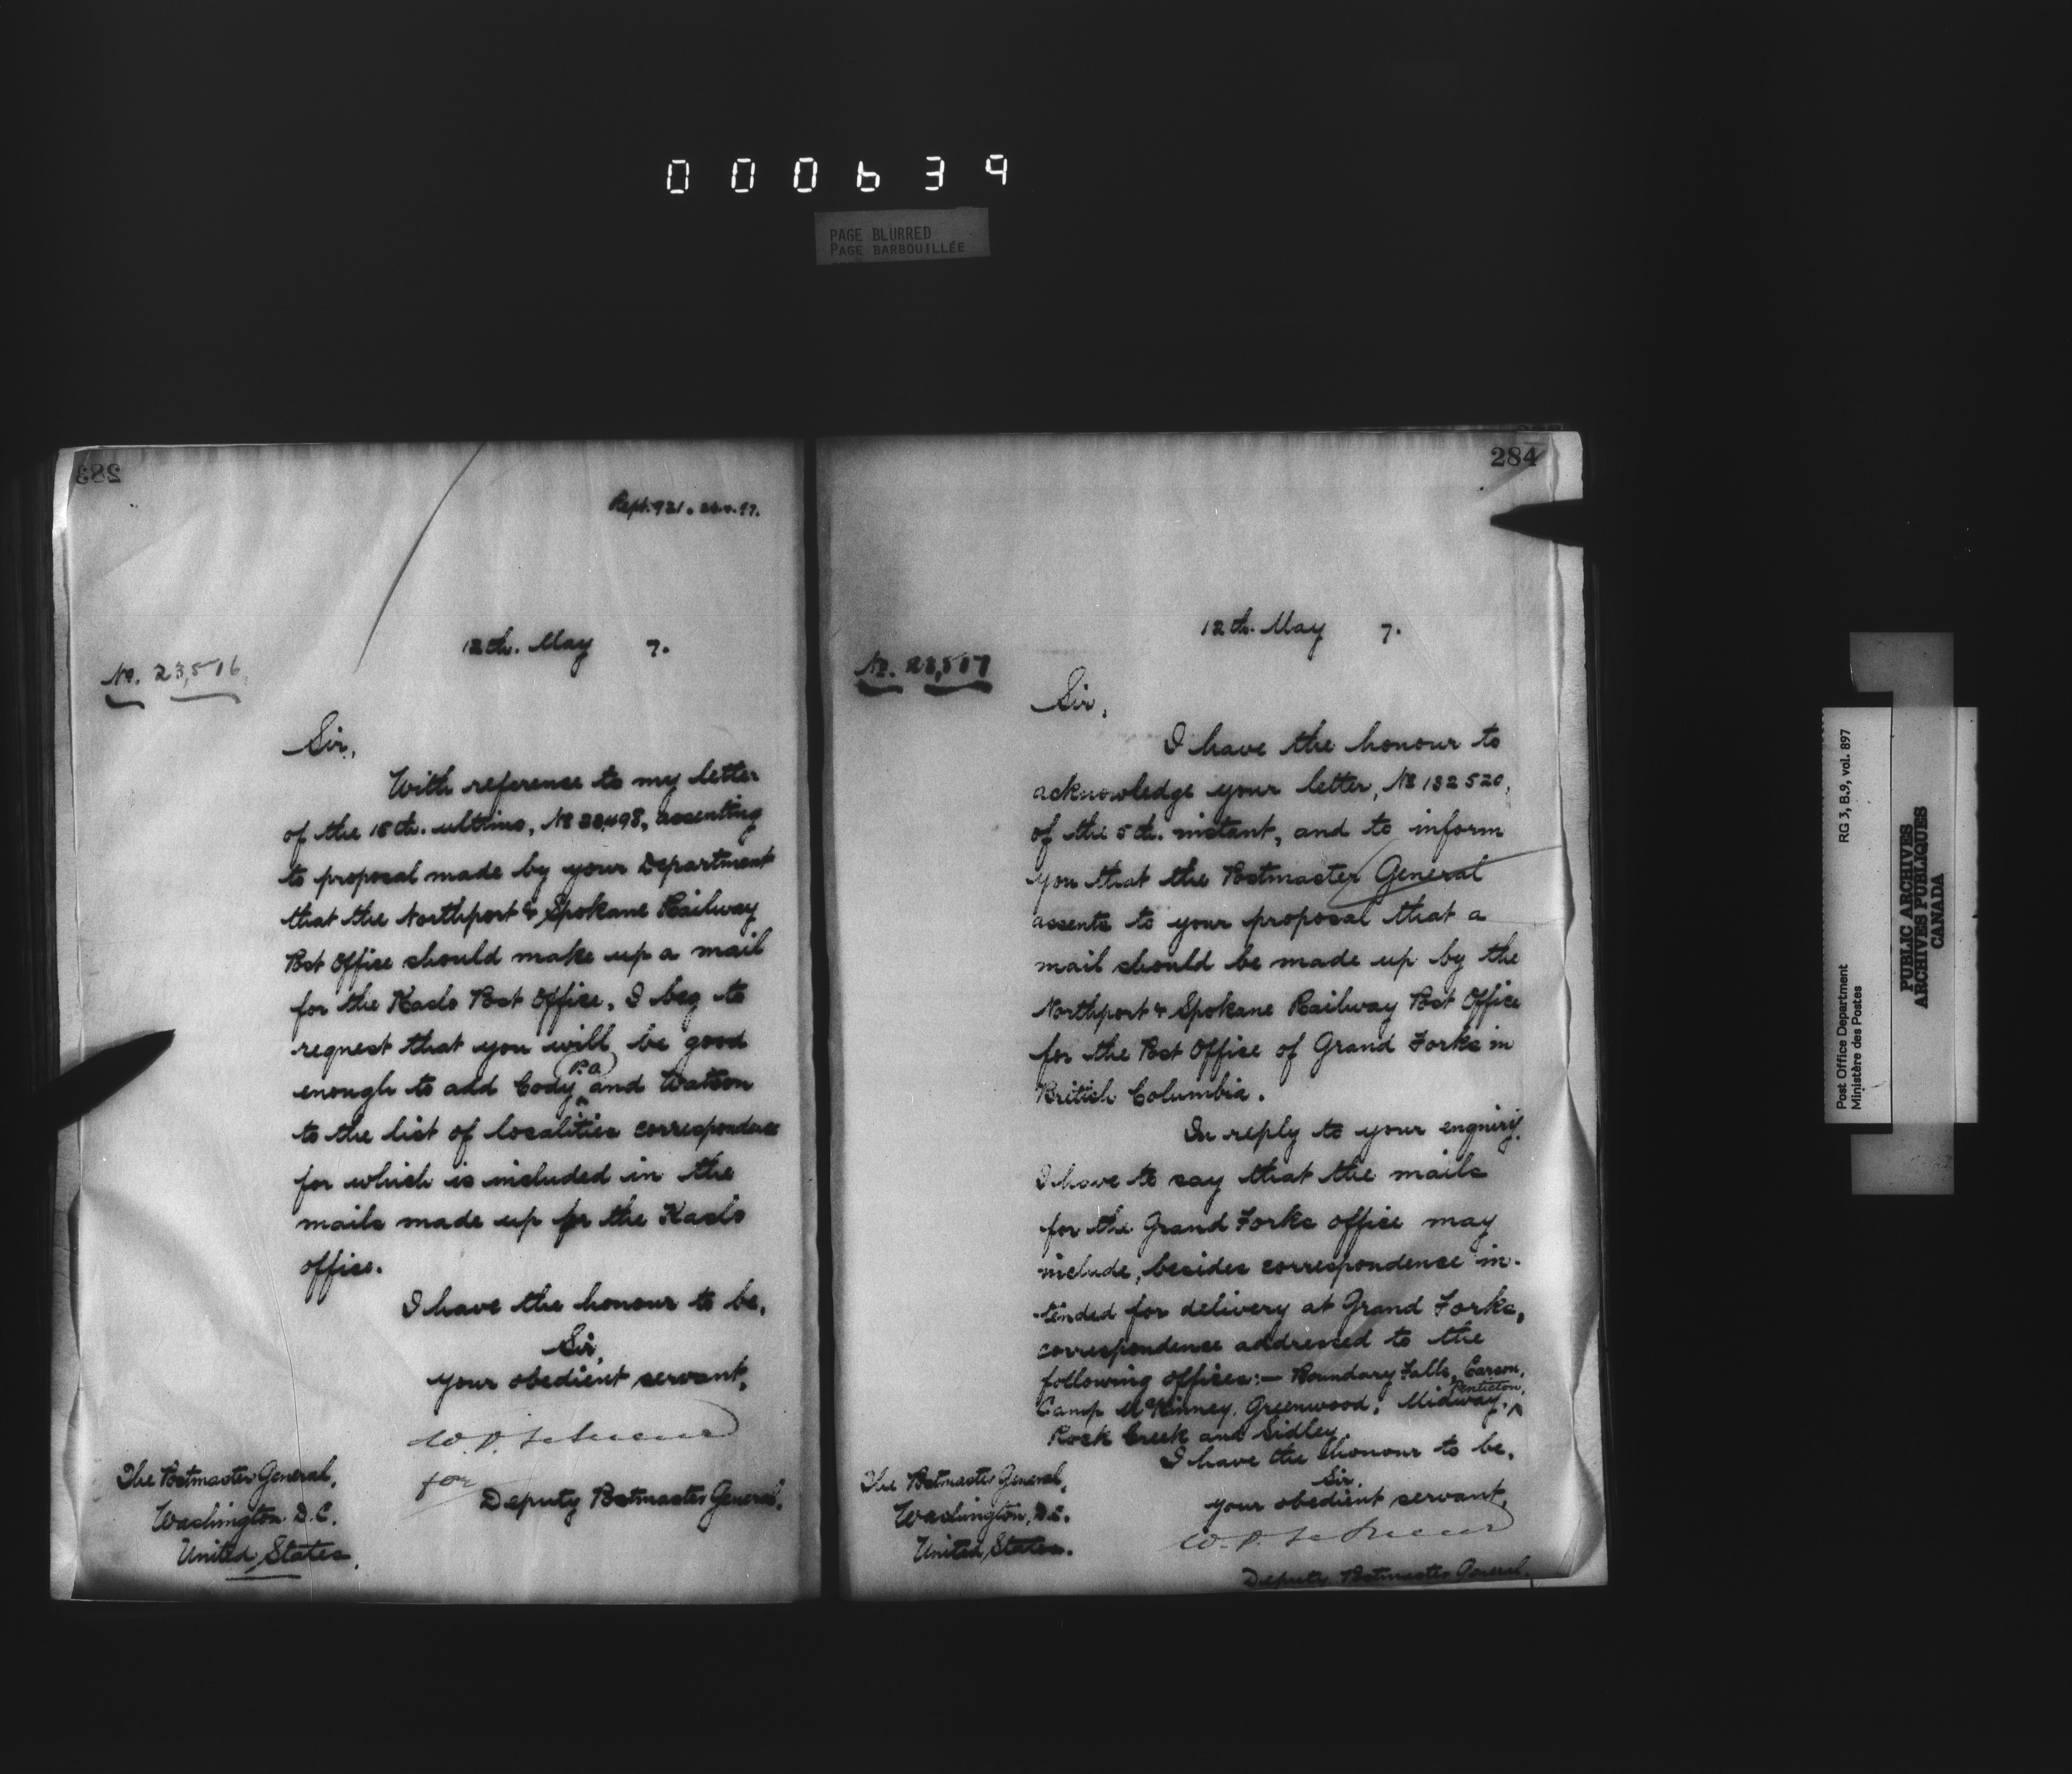 000639
PAGE BLURRED
PAGE BARBOUILLÉE
283
Rept. 921.
12th. May 7.
No. 23,516
Sir,
With reference to my letter
of the 15th. ultimo, No 23,498, assenting
to proposal made by your Department
that the Northport & Spokane Railway
Post Office should make up a mail
for the Kaslo Post Office, I beg to
request that you will be good
P.a
enough to add Cody and Watson
to the list of localities correspondence
for which is included in the
mails made up for the Kaslo
office.
I have the honour to be,
Sir,
your obedient servant,
for
Deputy Postmaster General.
The Postmaster General,
Washington D.C.
United States.
284
12th. May 7.
No. 23,517
Sir,
I have the honour to
acknowledge your letter, No 132520,
of the 5th. instant, and to inform
you that the Postmaster General
assents to your proposal that a
mail should be made up by the
Northport & Spokane Railway Post Office
for the Post Office of Grand Forks in
British Columbia.
In reply to your enquiry,
I have to say that the mails
for the Grand Forks office may
include, besides correspondence in-
tended for delivery at Grand Forks,
correspondence addressed to the
following offices:— Boundary Falls, Carson,
Penticton,
Camp McKinney, Greenwood, Midway,
Rock Creek and Sidley.
I have the honour to be,
Sir,
your obedient servant,
Deputy Postmaster General.
The Postmaster General,
Washington, D.C.
United States.
Post Office Department
Ministère des Postes
RG 3, B.9, vol. 897
PUBLIC ARCHIVES
ARCHIVES PUBLIQUES
CANADA